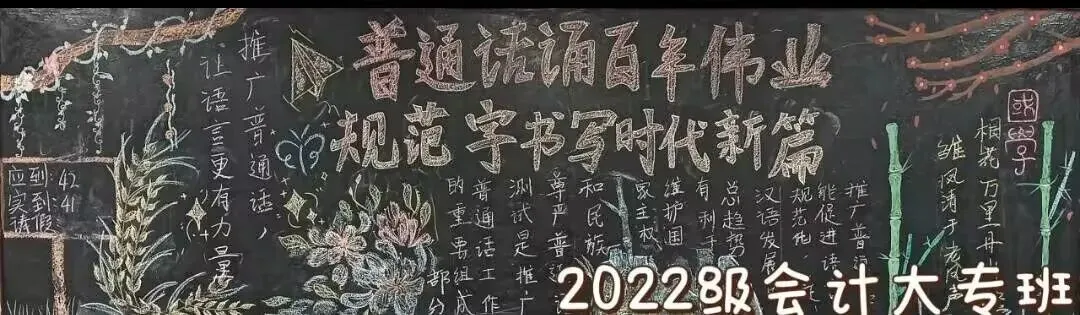 推广普通话，
让语言更有力量
普通话诵百年伟业
规范字书写时代新篇
应到：42
实到：41
请假
推广普通
能促进语
规范化，
汉语发展
总趋势
有利于
维护国
家主权
和民族
尊严 普
测试是推广
普通话工作
的重要组成
部分
國学
桐花万里丹
雏凤清于老凤声
2022级会计大专班